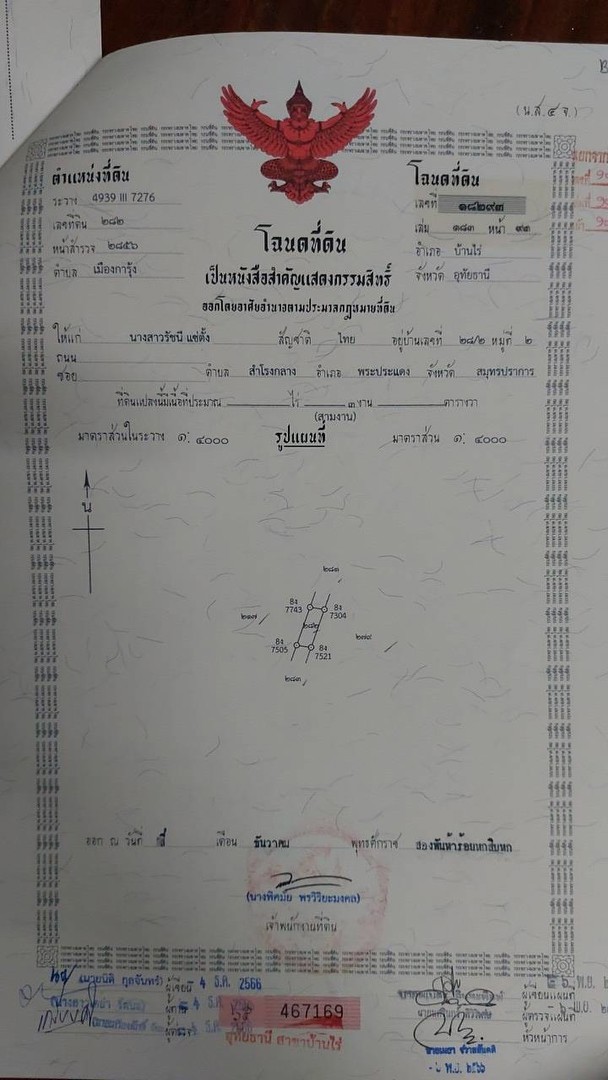 (น.ส.๔ จ.)
ตำแหน่งที่ดิน
ระวาง 4939 III 7276
เลขที่ดิน ๒๘๒
หน้าสำรวจ ๒๘๕๖
ตำบล เมืองการุ้ง
โฉนดที่ดิน
เลขที่ ๑๘๒๙๓
เล่ม ๑๘๓ หน้า ๙๓
อำเภอ บ้านไร่
จังหวัด อุทัยธานี
โฉนดที่ดิน
เป็นหนังสือสำคัญแสดงกรรมสิทธิ์
ออกโดยอาศัยอำนาจตามประมวลกฎหมายที่ดิน
ให้แก่ นางสาวรัชนี แซ่ตั้ง สัญชาติ ไทย อยู่บ้านเลขที่ ๒๘/๒ หมู่ที่ ๒
ถนน
ซอย ตำบล สำโรงกลาง อำเภอ พระประแดง จังหวัด สมุทรปราการ
ที่ดินแปลงนี้มีเนื้อที่ประมาณ ไร่ ๓ งาน ตารางวา
(สามงาน)
มาตราส่วนในระวาง ๑: ๔๐๐๐ รูปแผนที่ มาตราส่วน ๑: ๔๐๐๐
น
๒๘๑
8ง 7743
8ง 7304
๒๑๗
๒๘๒
๒๗๙
8ง 7505
8ง 7521
๒๘๓
ออก ณ วันที่ สี่ เดือน ธันวาคม พุทธศักราช สองพันห้าร้อยหกสิบหก
(นางพิศมัย พรวิริยะมงคล)
เจ้าพนักงานที่ดิน
(นายนิติ กุลจันทร์) ผู้เขียน 4 ธ.ค. 2566
467169
อุทัยธานี สาขาบ้านไร่
ผู้เขียนแผนที่
ผู้ตรวจแผนที่
หัวหน้าการ